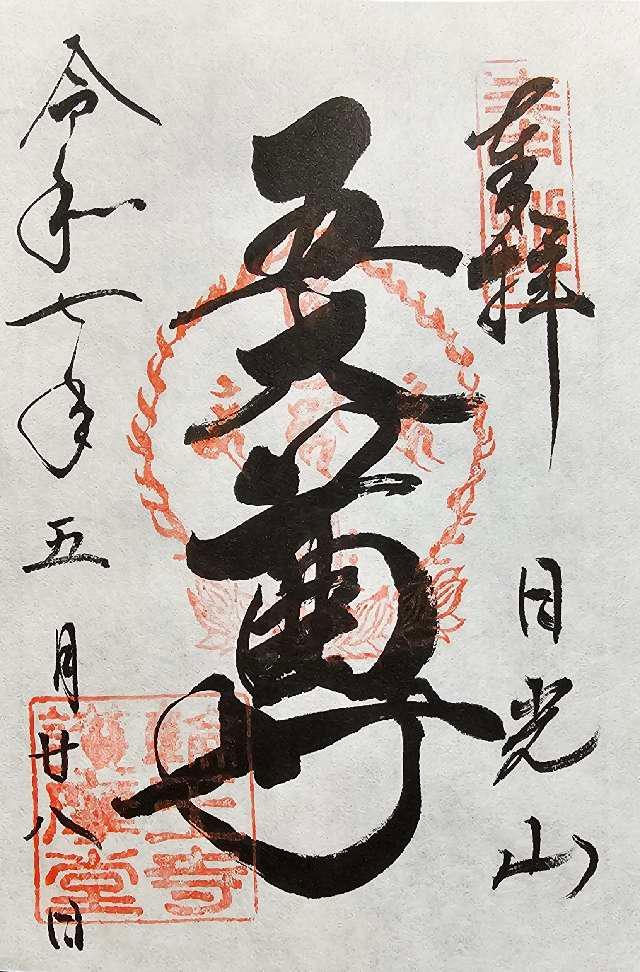 奉拝
日光山
五大尊
令和七年五月廿八日
奉拝
輪王寺
護摩堂